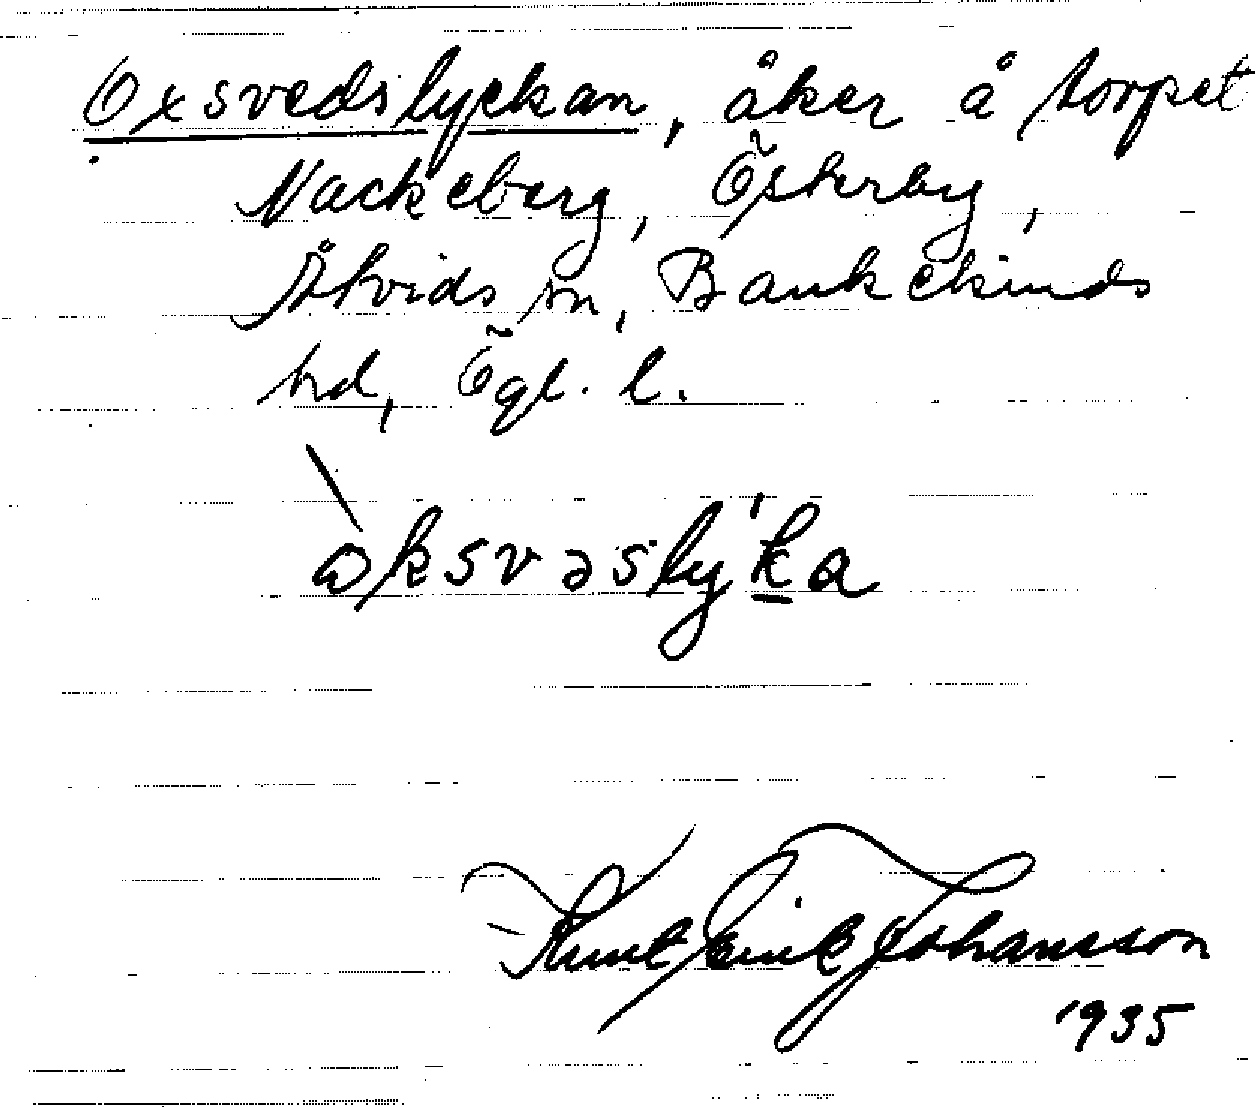 Oxsvedslyckan, åker å torpet
Nackeberg, Österby,
Åtvids sn, Bankekinds
hd, Ögl. l.
oksvəslyka
Knut Erik Johansson
1935